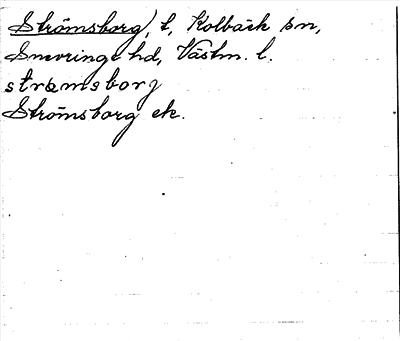 Strömsborg, t, Kolbäck sn,
Snevringe hd, Västm. l.
strømsborj
Strömsborg ek.